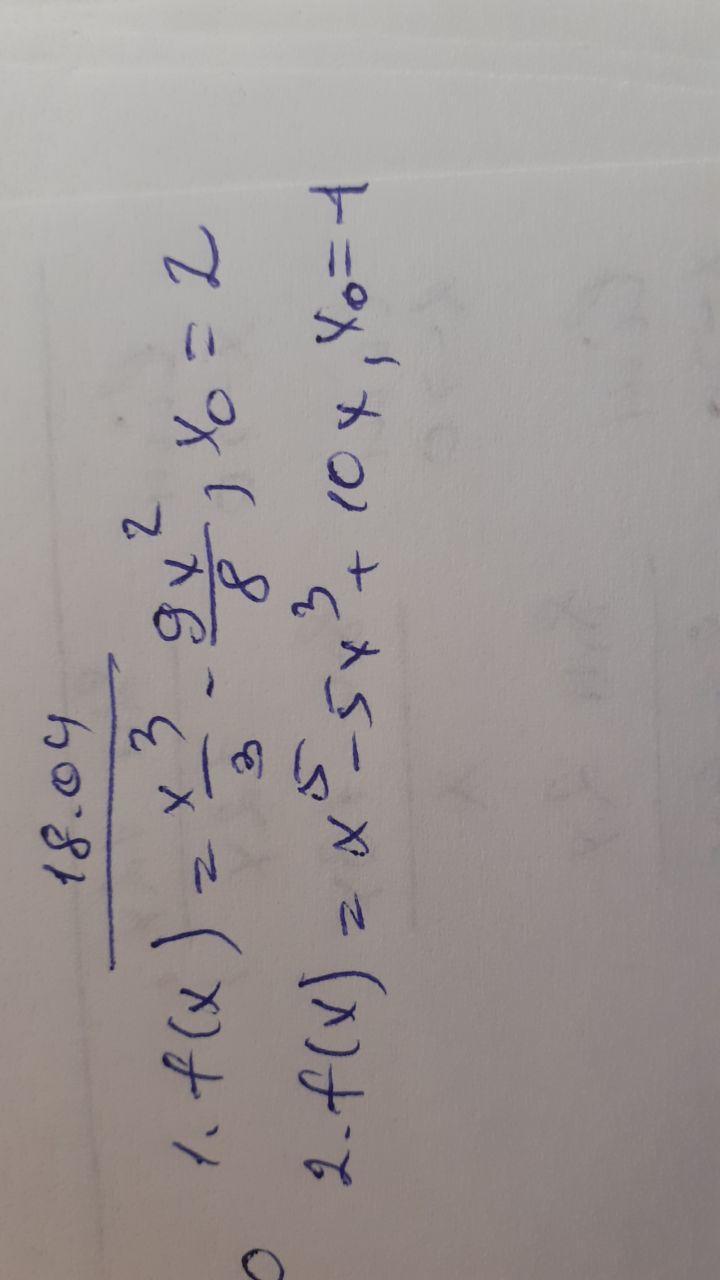 18.04
1. f(x) = x³/3 - 9x²/8, x₀ = 2
2. f(x) = x⁵ - 5x³ + 10x, x₀ = -1